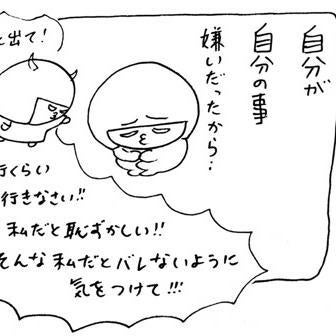 自分が
自分の事
嫌いだったから…
と出て!
行くらい
行きなさい!!
私だと恥ずかしい!!
そんな私だとバレないように
気をつけて!!!